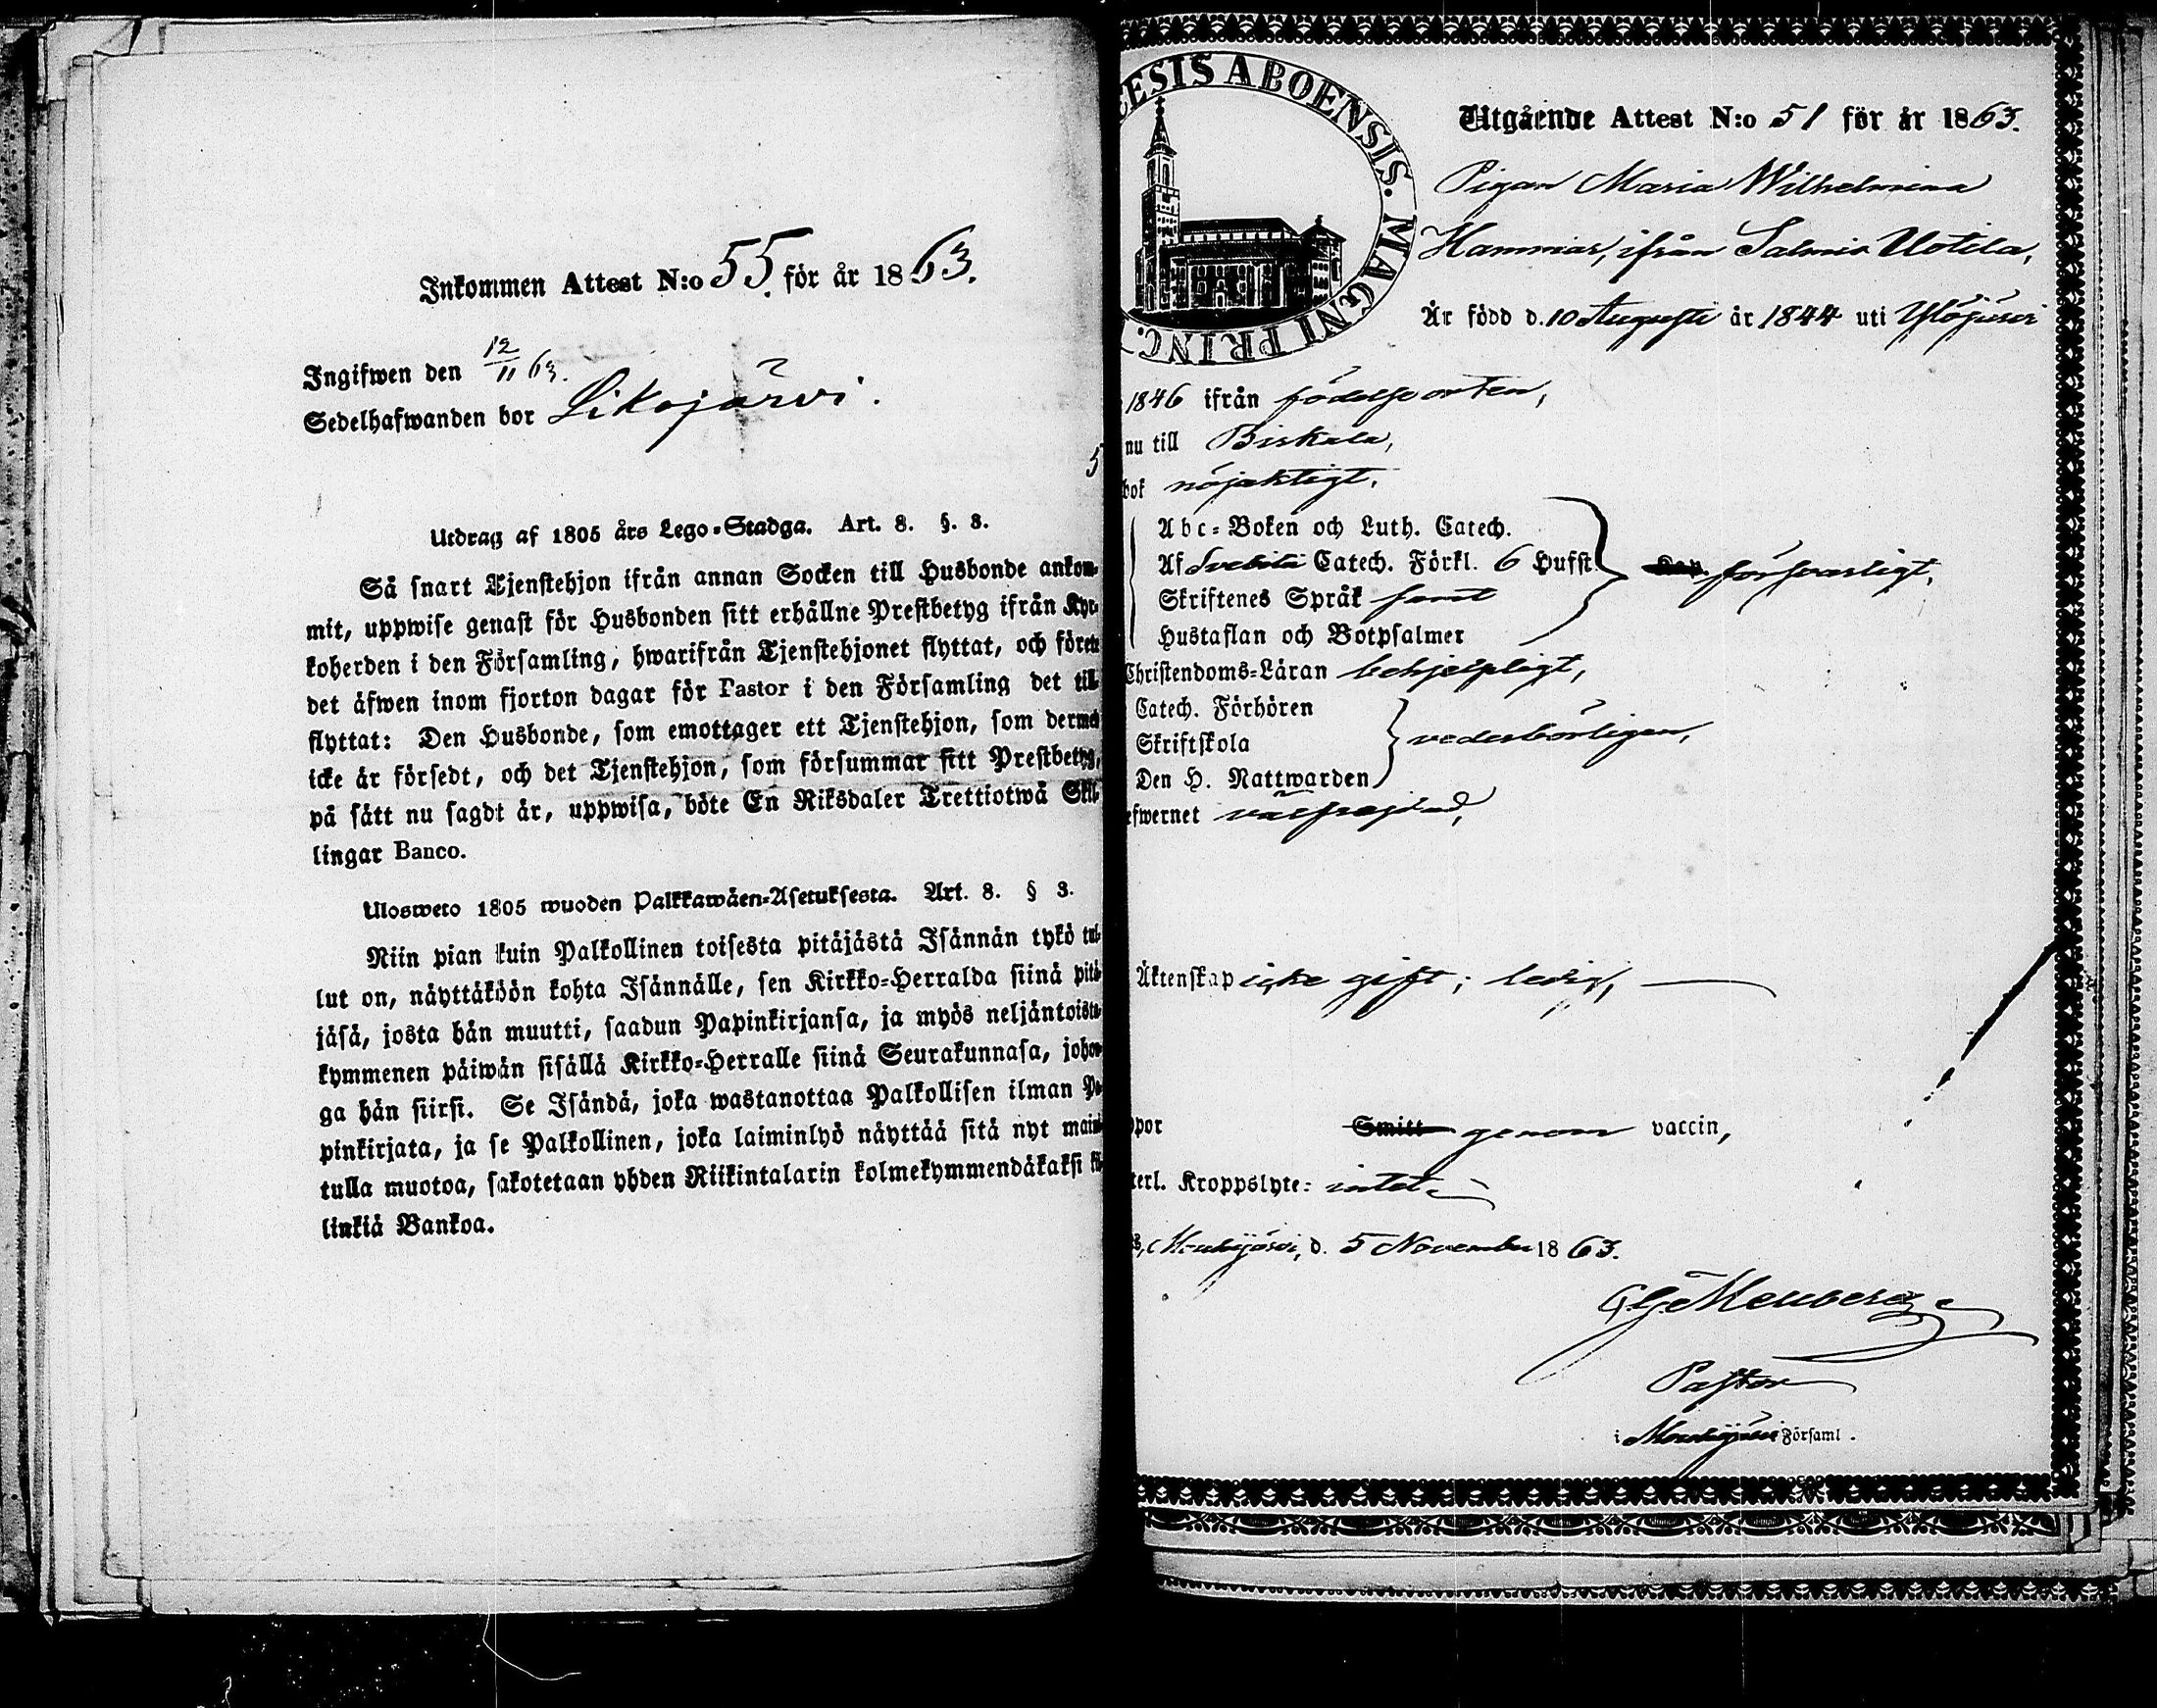 Inkommen Attest N:o 55. för år 1863.
Ingifwen den 12/11 63.
Sedelhafwanden bor Likojärvi.
5
Utdrag af 1805 års Lego-Stadga. Art. 8. §. 3.
Så snart Tjenstehjon ifrån annan Socken till Husbonde ankom-
mit, uppwise genast för Husbonden sitt erhållne Prestbetyg ifrån Kyr-
koherden i den Församling, hwarifrån Tjenstehjonet flyttat, och förete
det äfwen inom fjorton dagar för Pastor i den Församling det till
flyttat: Den Husbonde, som emottager ett Tjenstehjon, som dermed
icke är försedt, och det Tjenstehjon, som försummar sitt Prestbetyg,
på sätt nu sagdt är, uppwisa, böte En Riksdaler Trettiotwå Skil-
lingar Banco.
Ulosweto 1805 wuoden Palkkawäen-Asetuksesta. Art. 8. § 3.
Niin pian kuin Palkollinen toisesta pitäjästä Isännän tykö tul-
lut on, näyttäköön kohta Isännälle, sen Kirkko-Herralda siinä pitä-
jäsä, josta hän muutti, saadun Papinkirjansa, ja myös neljäntoista-
kymmenen päiwän sisällä Kirkko-Herralle siinä Seurakunnasa, johon-
ga hän siirsi. Se Isändä, joka wastanottaa Palkollisen ilman Pa-
pinkirjata, ja se Palkollinen, joka laiminlyö näyttää sitä nyt maini-
tulla muotoa, sakotetaan yhden Riikintalarin kolmekymmendäkaksi kil-
linkiä Bankoa.
ESIS ABOENSIS. MAGNI PRINC.
Utgående Attest N:o 51 för år 1863.
Pigan Maria Wilhelmina
Hammar, ifrån Salmis Uotila,
Är född d. 10 Augusti år 1844 uti Ylöjärvi
1846 ifrån födelseorten,
nu till Birkala,
bok nöjaktigt,
Abc-Boken och Luth. Catech.
Af Svebilii Catech. Förkl. 6 Hufst. försvarligt,
Skriftenes Språk samt
Hustaflan och Botpsalmer
Christendoms-Läran behjelpligt,
Catech. Förhören
Skriftskola vederbörligen,
Den H. Nattwarden
efwernet välfrejdad,
Äktenskap icke gift; ledig,
ppor Smitt genom vaccin,
terl. Kroppslyte: intet
s, Mouhijärvi, d. 5 November 1863.
Pastor
i Mouhijärvi Församl.